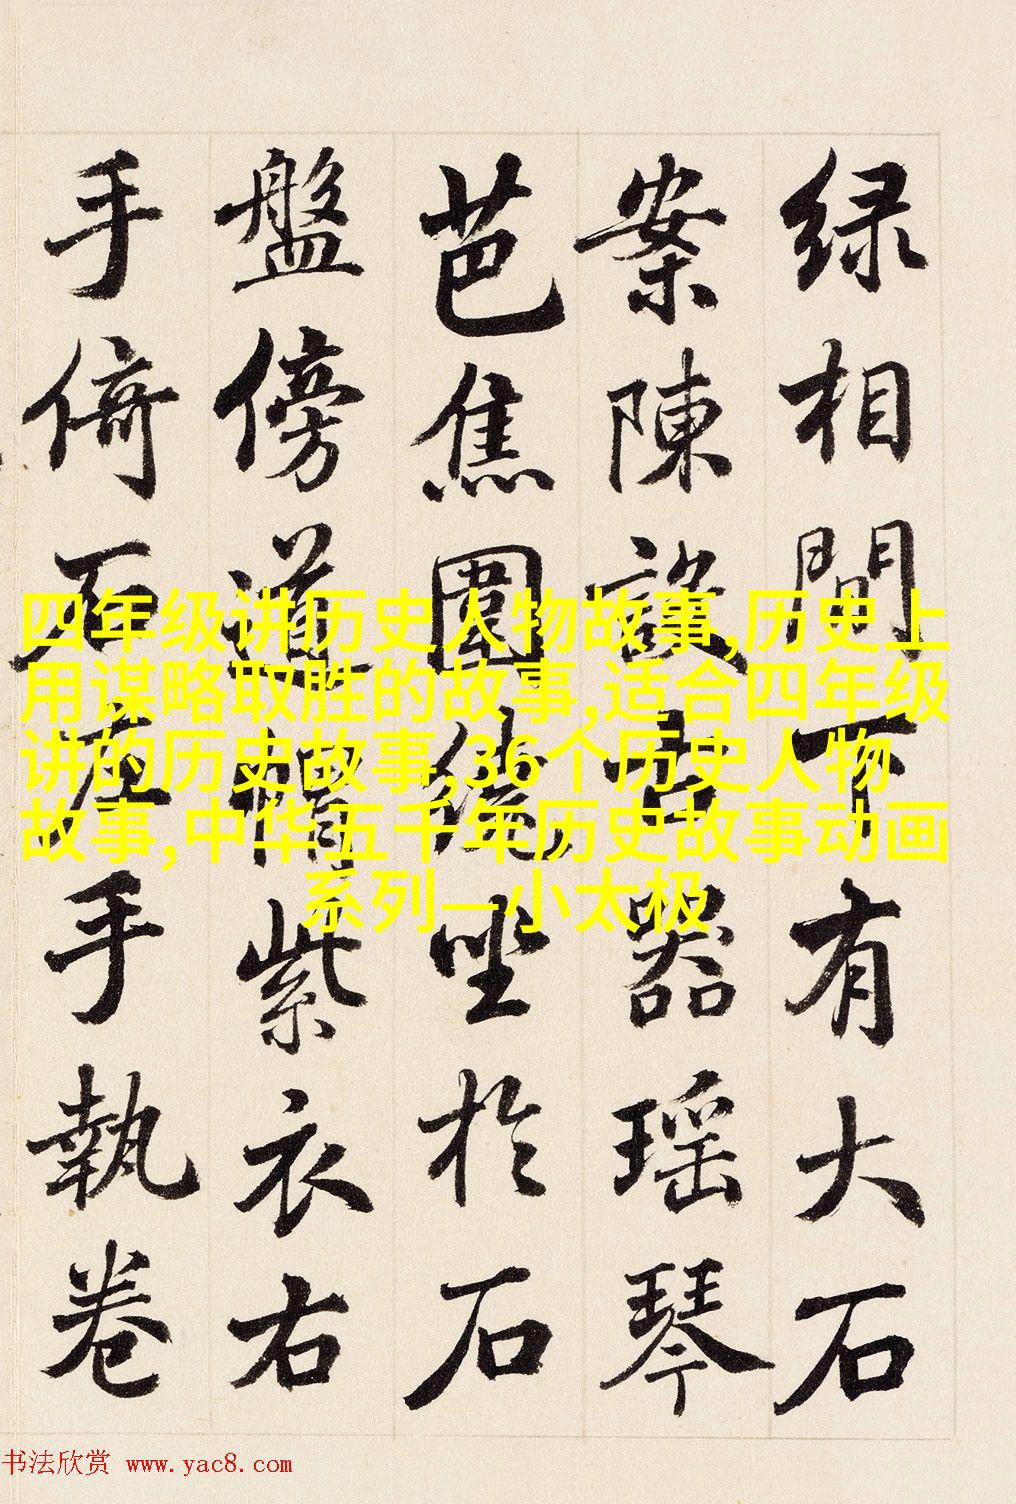 绿相間下有大石
案陳設古器瑶琴
芭焦圍繞坐於石
盤傍道帽紫衣右
手倚石左手執卷
四年级讲历史人物故事,历史上
用谋略取胜的故事,适合四年级
讲的历史故事,36个历史人物
故事,中华五千年历史故事动画
系列—小太极
书法欣赏 www.yac8.com